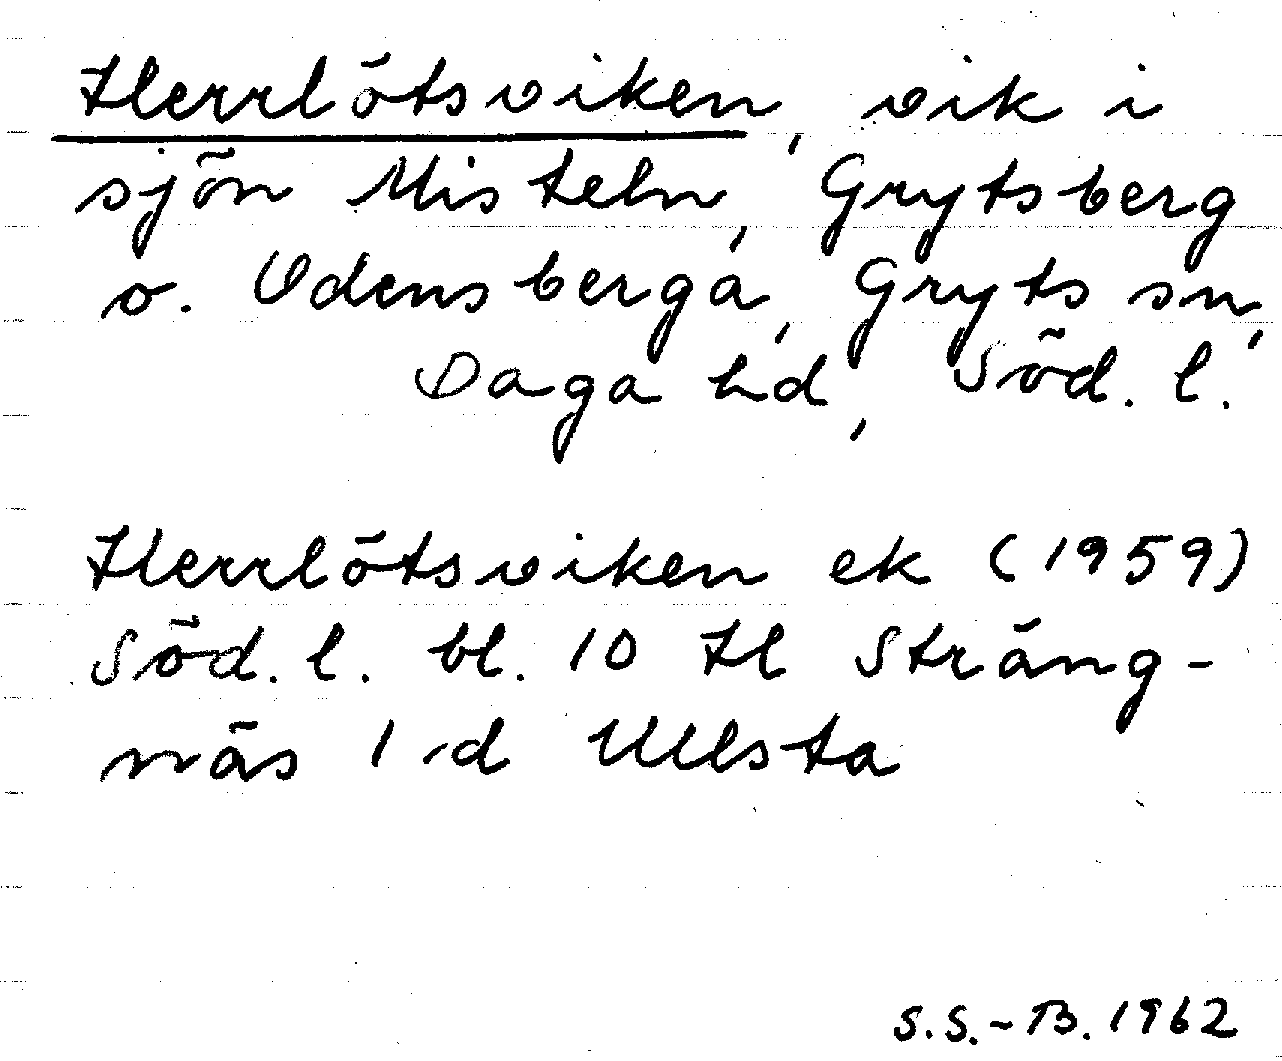 Herrlötsviken, vik i
sjön Misteln, Grytsberg
o. Odensberga, Gryts sn,
Daga hd, Söd. l.
Herrlötsviken ek (1959)
Söd. l. bl. 10 Hl Sträng-
näs 1 d Ullsta
S.S.-B. 1962